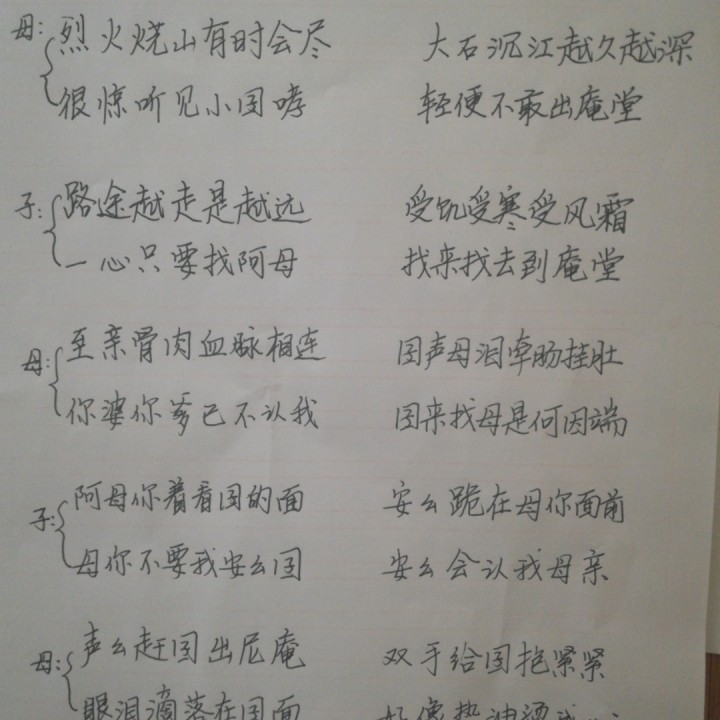 母: 烈火烧山有时会尽 大石沉江越久越深
很惊听见小囝哮 轻便不敢出庵堂
子: 路途越走是越远 受饥受寒受风霜
一心只要找阿母 找来找去到庵堂
母: 至亲骨肉血脉相连 囝声母泪牵肠挂肚
你婆你爹已不认我 囝来找母是何因端
子: 阿母你着看囝的面 安么跪在母你面前
母你不要我安么囝 安么会认我母亲
母: 声么赶囝出尼庵 双手给囝抱紧紧
眼泪滴落在囝面 好像热油